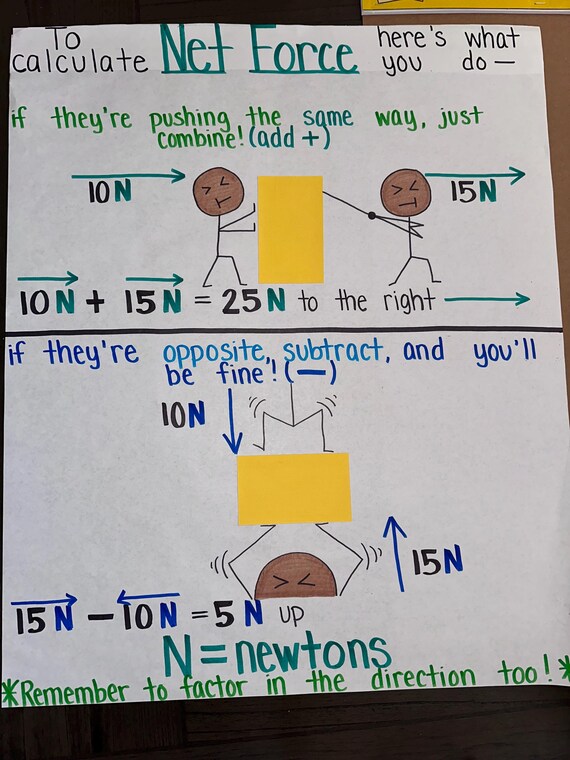 To calculate Net Force here's what you do —
if they're pushing the same way, just
combine! (add +)
10N
15N
10N + 15N = 25N to the right
if they're opposite, subtract, and you'll
be fine! (—)
10N
15N
15N — 10N = 5N UP
N = newtons
*Remember to factor in the direction too! *